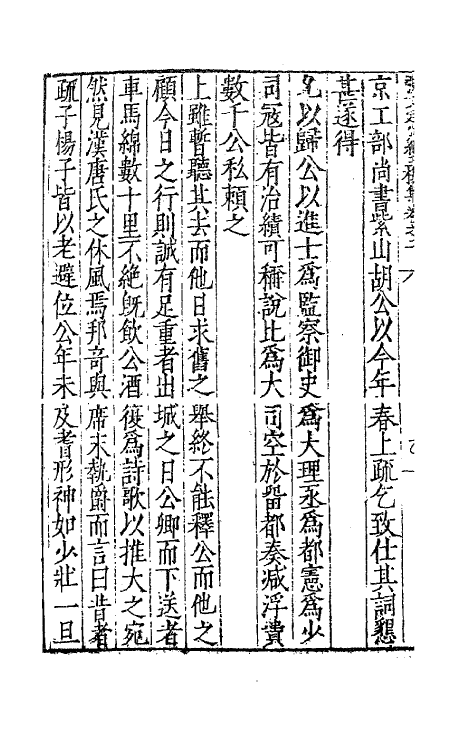 京工部尚書㬎山胡公以今年春上疏乞致仕其詞懇
甚遂得
允以歸公以進士爲監察御史爲大理丞爲都憲爲少
司寇皆有治績可稱說比爲大司空於留都奏减浮費
數千公私賴之
上雖暫聽其去而他日求舊之舉終不能釋公而他之
顧今日之行則誠有足重者出城之日公卿而下送者
車馬綿數十里不絶旣飲公酒復爲詩歌以推大之宛
然見漢唐氏之休風焉邦竒與席末執爵而言曰昔者
疏子楊子皆以老避位公年未及耆形神如少壯一旦